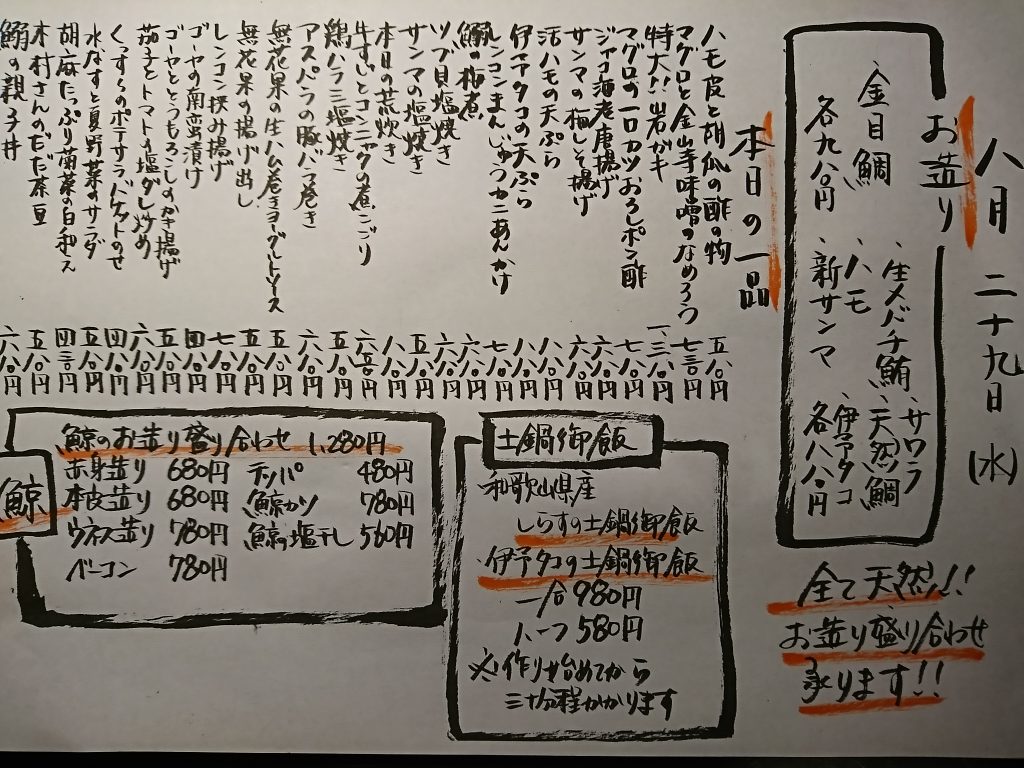 八月二十九日(水)
お造り
、生メバチ鮪、サワラ
、ハモ、天然鯛
、新サンマ、伊予タコ
各八八〇円
、金目鯛
各九八〇円
全て天然!!
お造り盛り合わせ
承ります!!
本日の一品
ハモ皮と胡瓜の酢の物 五八〇円
マグロと金山寺味噌のなめろう 七三〇円
特大!!岩ガキ 一、三八〇円
マグロの一口カツおろしポン酢 七八〇円
ジャコ海老唐揚げ 六八〇円
サンマの梅しそ揚げ 六八〇円
活ハモの天ぷら 八八〇円
伊予タコの天ぷら 八八〇円
レンコンまんじゅうカニあんかけ 七八〇円
鰯の梅煮 八〇円
ツブ貝塩焼き 八〇円
サンマの塩焼き 五八〇円
本日の荒炊き 八八〇円
牛すじとコンニャクの煮こごり 六五〇円
鶏ハラミ塩焼き 五八〇円
アスパラの豚バラ巻き 六八〇円
無花果の生ハム巻きヨーグルトソース 五八〇円
無花果の揚げ出し 六八〇円
レンコン挟み揚げ 八〇円
ゴーヤの南蛮漬け 四八〇円
ゴーヤととうもろこしのかき揚げ 五八〇円
茄子とトマトの塩ダレ炒め 六八〇円
くっすらのポテサラバゲットのせ 四八〇円
水なすと夏野菜のサラダ 五八〇円
胡麻たっぷり菊菜の白和え 四三〇円
木村さんのだだ茶豆 五八〇円
鰯の親子丼 六八〇円
土鍋御飯
和歌山県産
しらすの土鍋御飯
伊予タコの土鍋御飯
一合980円
ハーフ580円
※作り始めてから
三十分程かかります
鯨
鯨のお造り盛り合わせ 1,280円
赤身造り 680円 テッパ 480円
本皮造り 680円 鯨カツ 780円
ウネス造り 780円 鯨の塩干し 560円
ベーコン 780円